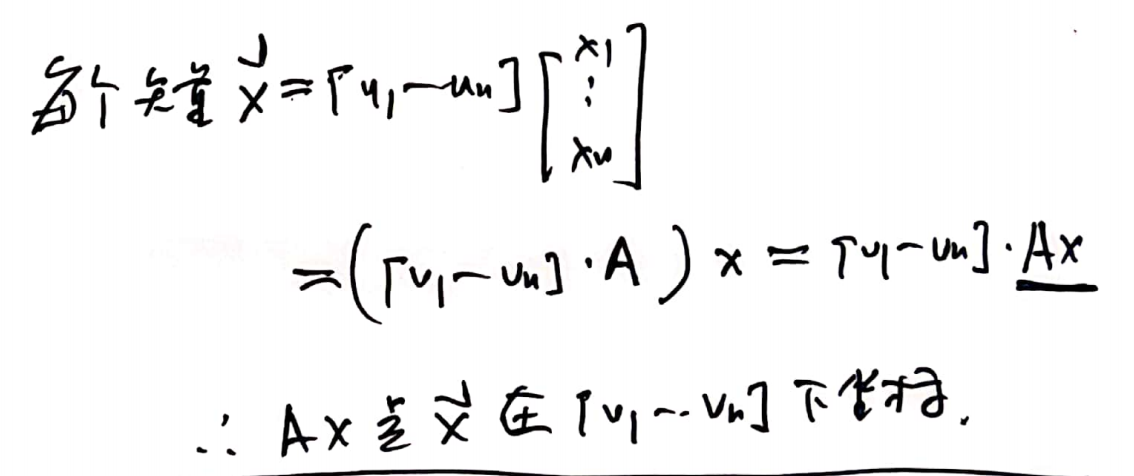 每个矢量 x⃗ = [u₁ — uₙ] [x₁ ⋮ xₙ]
= ([v₁ — vₙ] · A) x = [v₁ — vₙ] · Ax
∴ Ax 是 x⃗ 在 [v₁ -- vₙ] 下坐标.